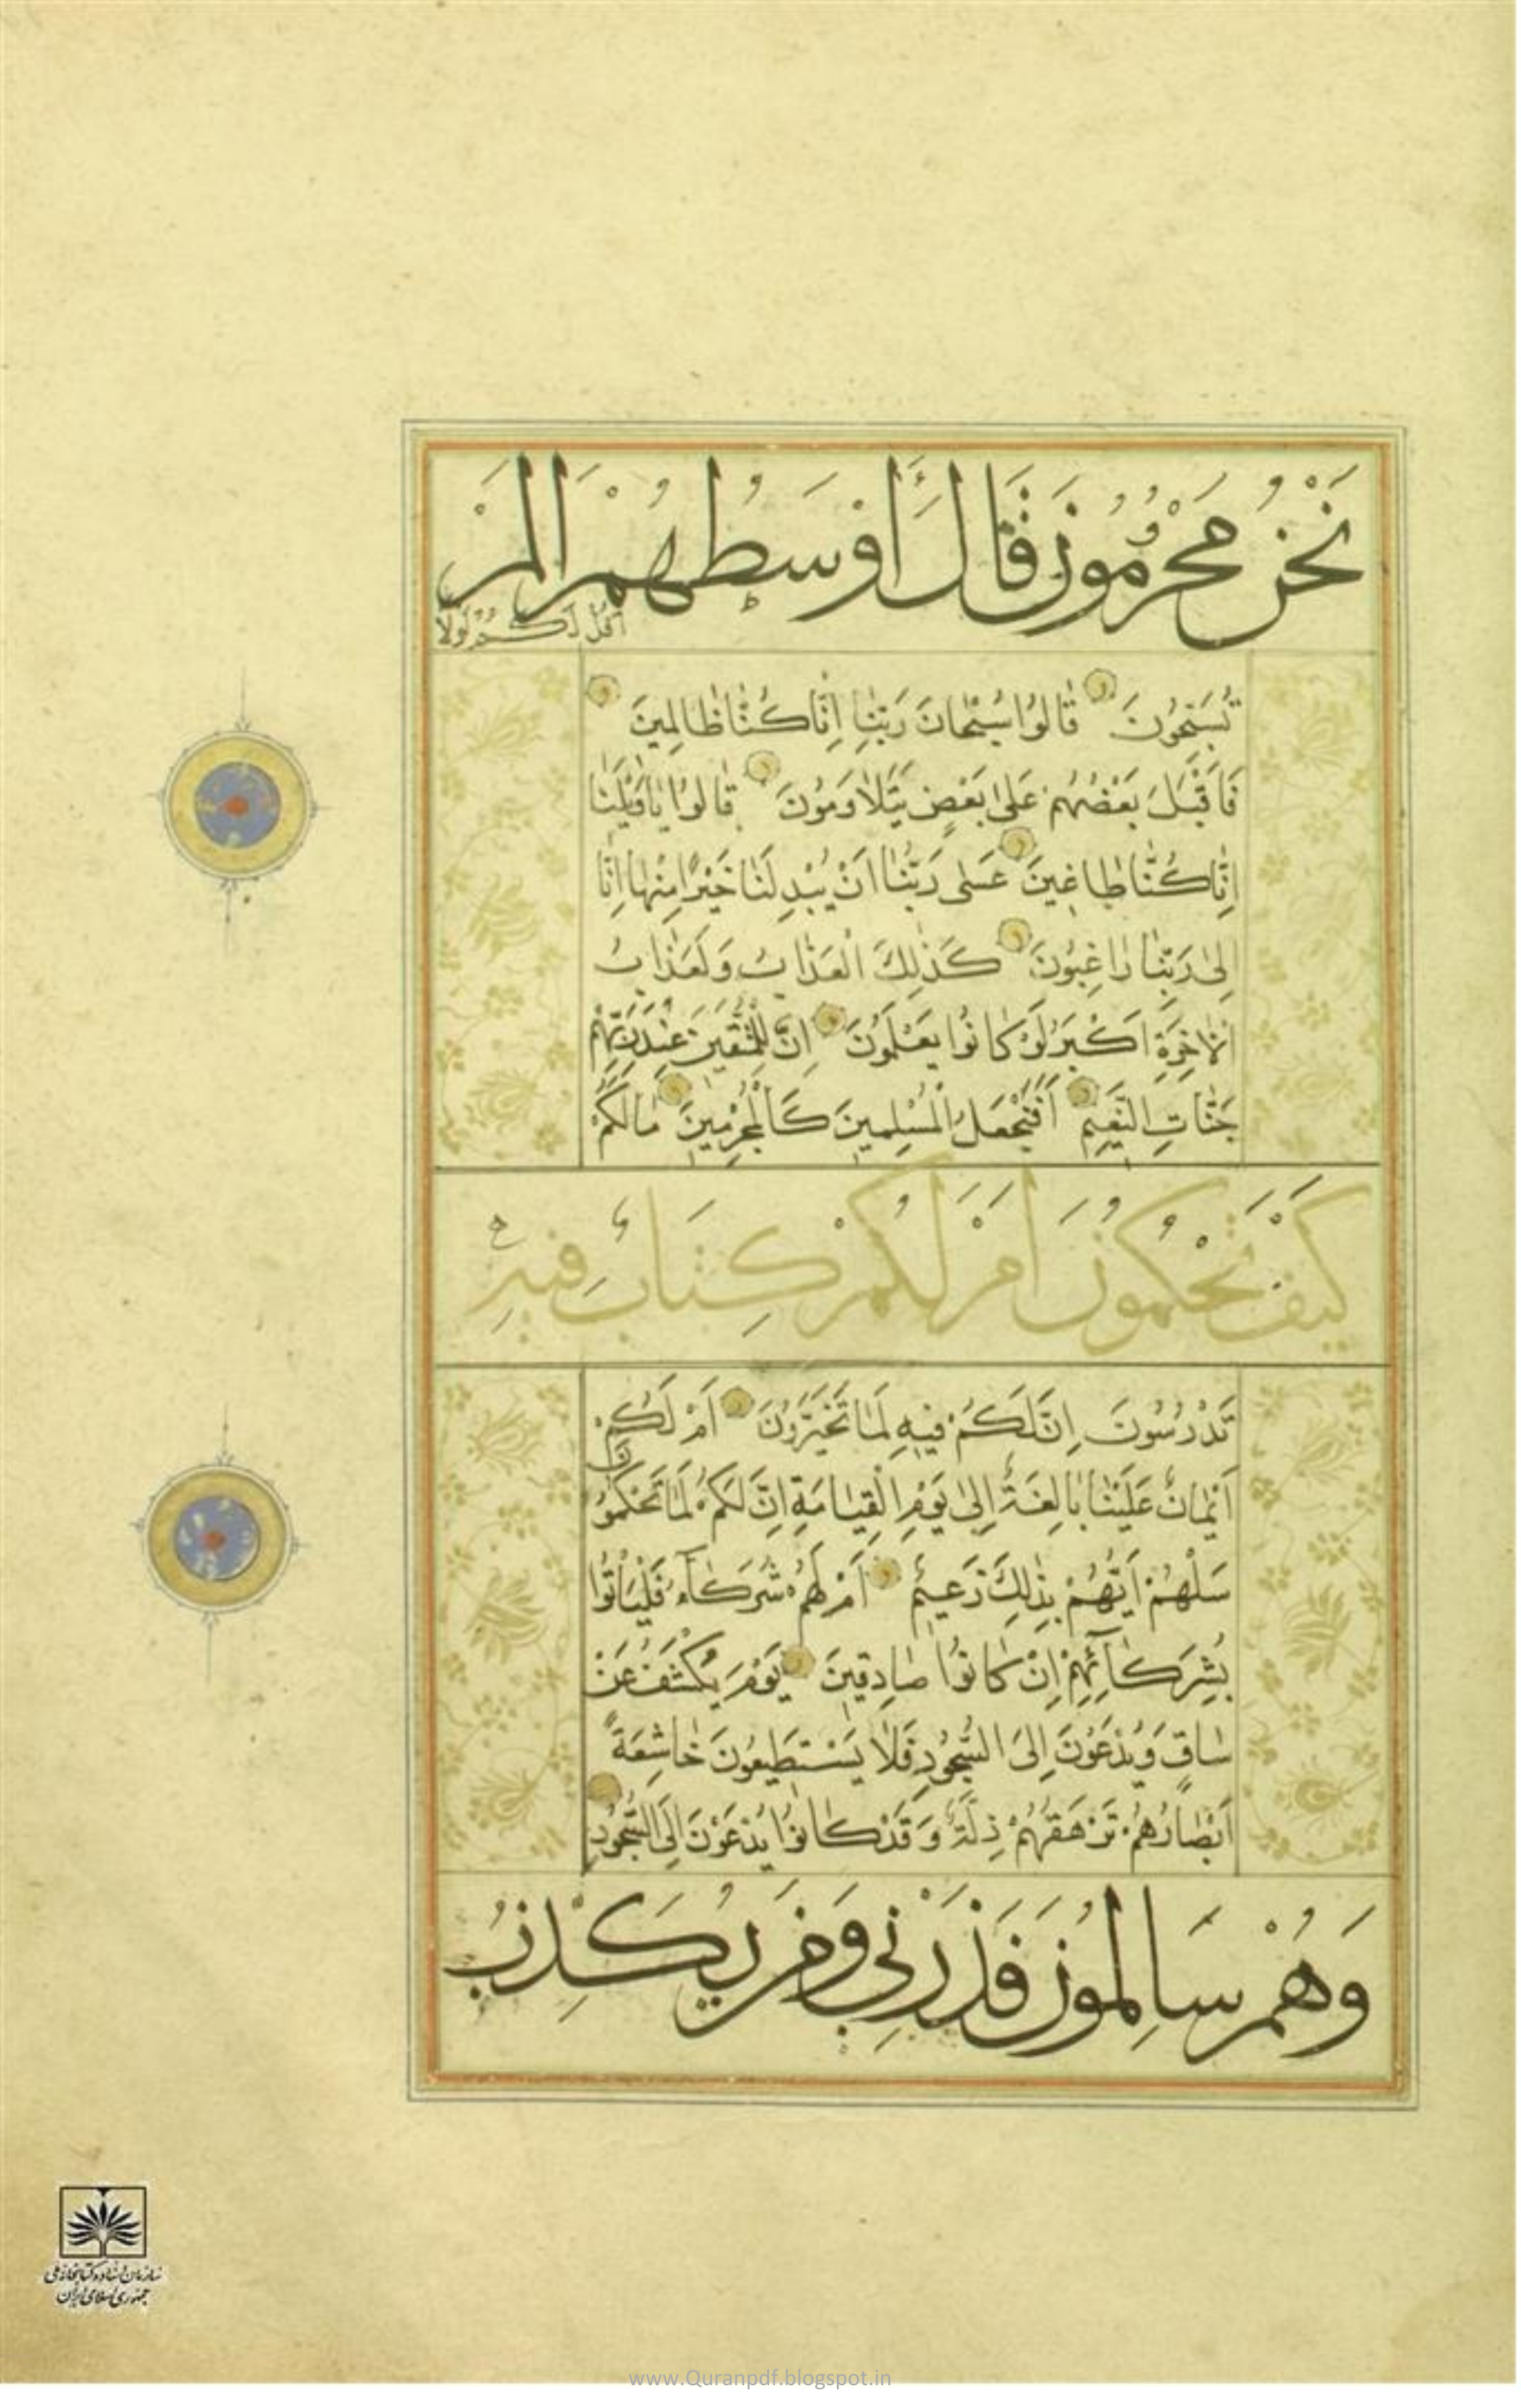 نَحْنُ مَحْرُومُونَ قَالَ أَوْسَطُهُمْ أَلَمْ
أَقُلْ لَكُمْ لَوْلَا
تُسَبِّحُونَ قَالُوا سُبْحَانَ رَبِّنَا إِنَّا كُنَّا ظَالِمِينَ
فَأَقْبَلَ بَعْضُهُمْ عَلَى بَعْضٍ يَتَلَاوَمُونَ قَالُوا يَاوَيْلَنَا
إِنَّا كُنَّا طَاغِينَ عَسَى رَبُّنَا أَنْ يُبْدِلَنَا خَيْرًا مِنْهَا إِنَّا
إِلَى رَبِّنَا رَاغِبُونَ كَذَلِكَ الْعَذَابُ وَلَعَذَابُ
الْآخِرَةِ أَكْبَرُ لَوْ كَانُوا يَعْلَمُونَ إِنَّ لِلْمُتَّقِينَ عِنْدَ رَبِّهِمْ
جَنَّاتِ النَّعِيمِ أَفَنَجْعَلُ الْمُسْلِمِينَ كَالْمُجْرِمِينَ مَا لَكُمْ
كَيْفَ تَحْكُمُونَ أَمْ لَكُمْ كِتَابٌ فِيهِ
تَدْرُسُونَ إِنَّ لَكُمْ فِيهِ لَمَا تَخَيَّرُونَ أَمْ لَكُمْ
أَيْمَانٌ عَلَيْنَا بَالِغَةٌ إِلَى يَوْمِ الْقِيَامَةِ إِنَّ لَكُمْ لَمَا تَحْكُمُونَ
سَلْهُمْ أَيُّهُمْ بِذَلِكَ زَعِيمٌ أَمْ لَهُمْ شُرَكَاءُ فَلْيَأْتُوا
بِشُرَكَائِهِمْ إِنْ كَانُوا صَادِقِينَ يَوْمَ يُكْشَفُ عَنْ
سَاقٍ وَيُدْعَوْنَ إِلَى السُّجُودِ فَلَا يَسْتَطِيعُونَ خَاشِعَةً
أَبْصَارُهُمْ تَرْهَقُهُمْ ذِلَّةٌ وَقَدْ كَانُوا يُدْعَوْنَ إِلَى السُّجُودِ
وَهُمْ سَالِمُونَ فَذَرْنِي وَمَنْ يُكَذِّبُ
سازمان اسناد و کتابخانه ملی
جمهوری اسلامی ایران
www.Quranpdf.blogspot.in